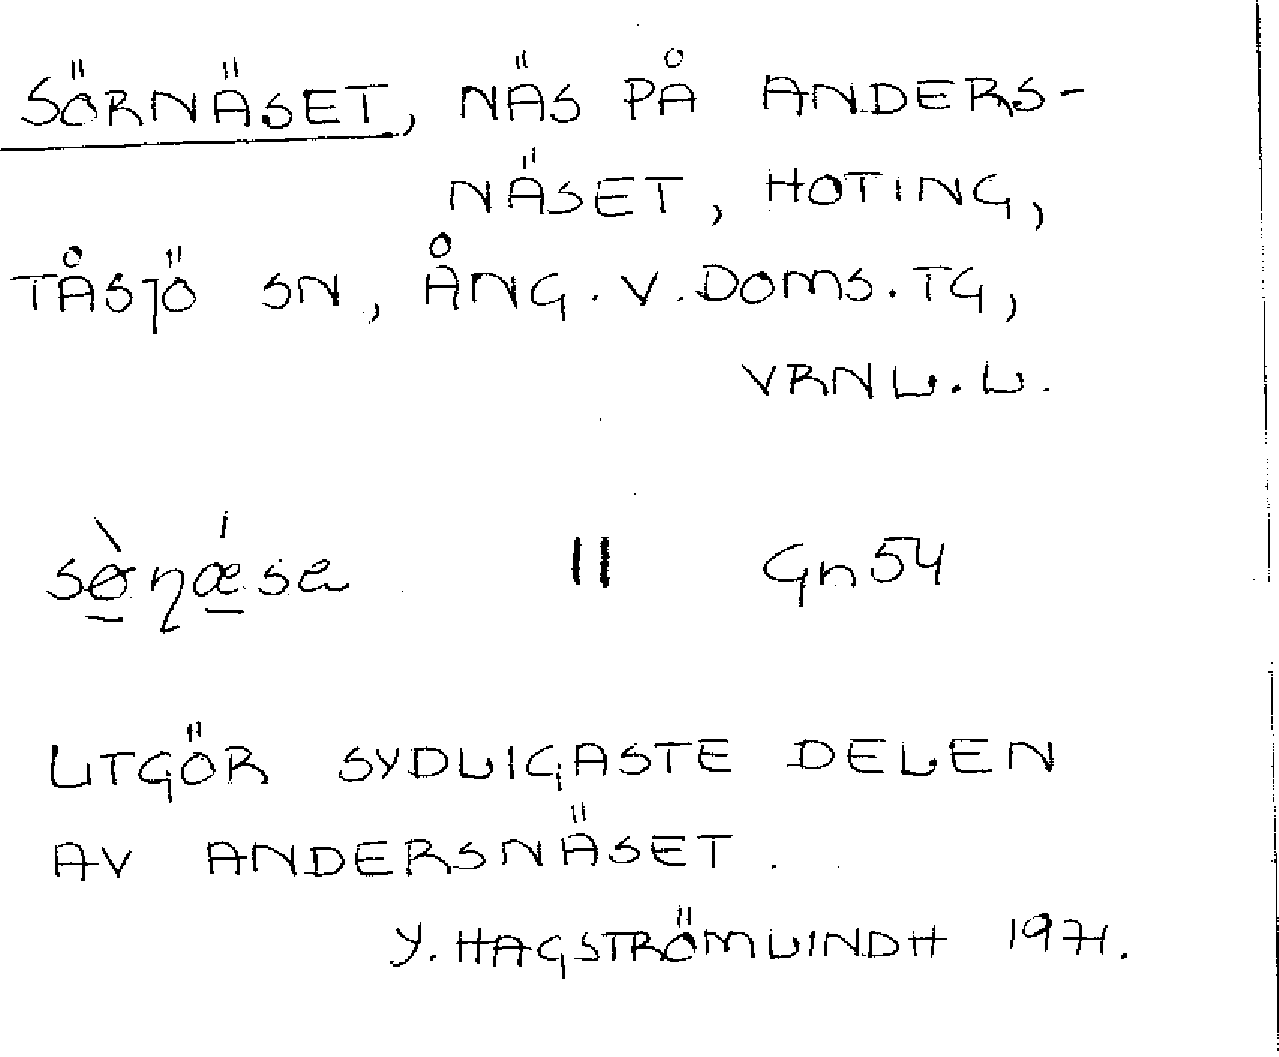 SÖRNÄSET, NÄS PÅ ANDERS-
NÄSET, HOTING,
TÅSJÖ SN, ÅNG. V. DOMS. TG,
VRNL. L.
Gn 54
UTGÖR SYDLIGASTE DELEN
AV ANDERSNÄSET.
Y. HAGSTRÖMLINDH 1971.